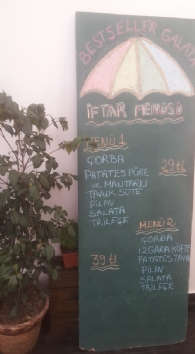 BESTSELLER GALATA
İFTAR MENÜSÜ
MENÜ 1
ÇORBA
29 tl
PATATES PÜRE
VE MANTARLI
TAVUK SOTE
PİLAV
SALATA
TRİLEÇE
MENÜ 2
ÇORBA
IZGARA KÖFTE
PATATES TAVA
PİLAV
SALATA
TRİLEÇE
39 tl